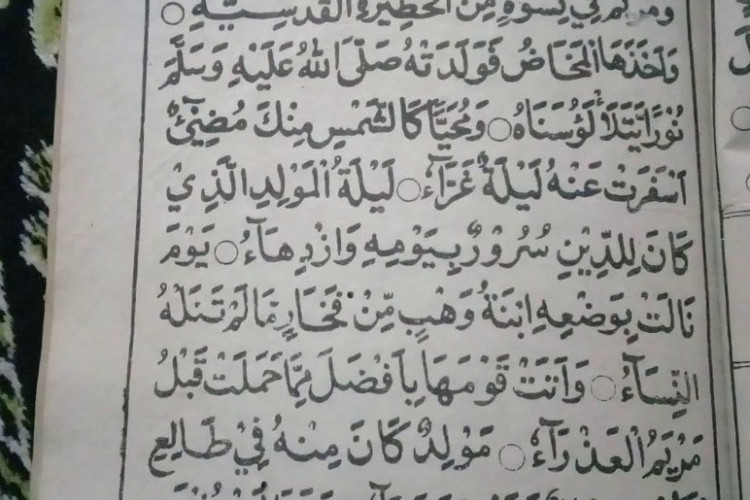 ومريم في نسوة من الحظيرة القدسية ○
وَاَخَذَهَا الْمَخَاضُ فَوَلَدَتْهُ صَلَّى اللهُ عَلَيْهِ وَسَلَّمَ
نُوْرًا يَّتَلَأْ لَؤُ سَنَاهُ ○ وَمُحَيًّا كَالشَّمْسِ مِنْكَ مُضِيْٓئٌ
اَسْفَرَتْ عَنْهُ لَيْلَةٌ غَرَّآءُ ○ لَيْلَةُ الْمَوْلِدِ الَّذِيْ
كَانَ لِلدِّيْنِ سُرُوْرٌ بِيَوْمِهِ وَازْدِهَآءُ ○ يَوْمَ
نَالَتْ بِوَضْعِهِ ابْنَةُ وَهْبٍ مِّنْ فَخَارٍ مَّالَمْ تَنَلْهُ
النِّسَآءُ ○ وَاَتَتْ قَوْمَهَا بِاَفْضَلَ مِمَّا حَمَلَتْ قَبْلُ
مَرْيَمُ الْعَذْرَآءُ ○ مَوْلِدٌ كَانَ مِنْهُ فِيْ طَالِعِ